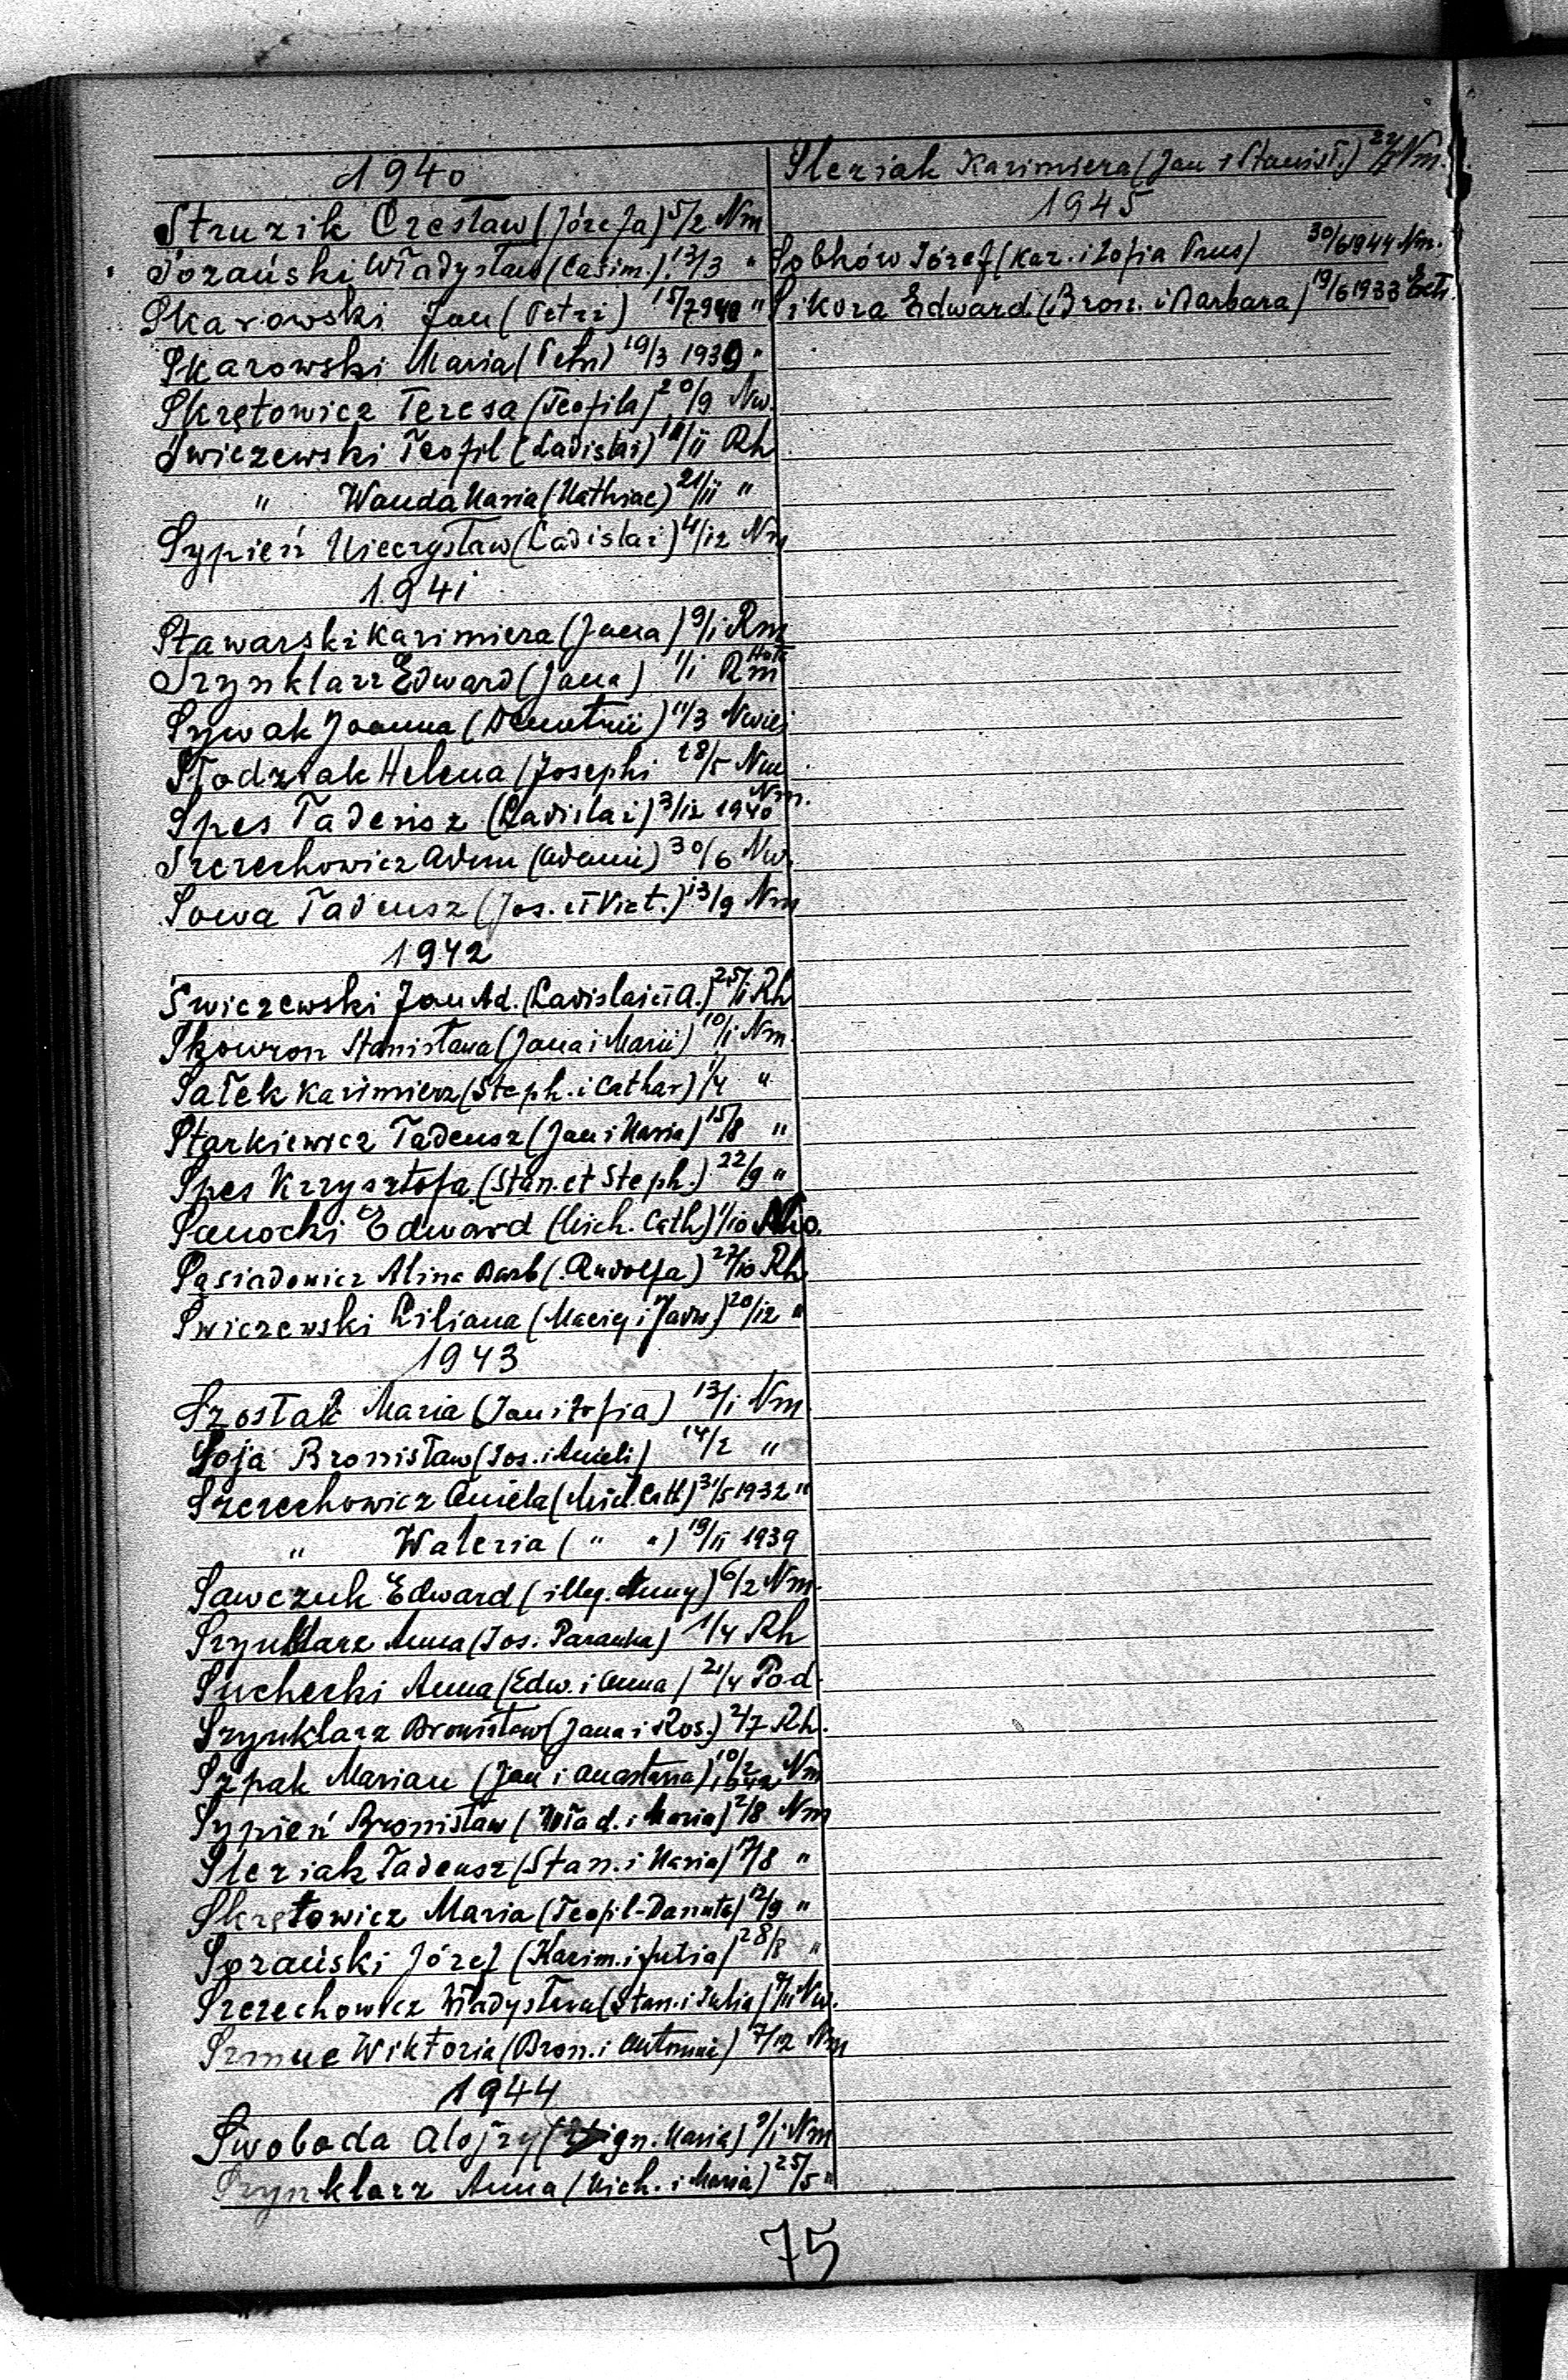 1940
Struzik Czesław (Józefa) 5/2 Nm
Sozański Władysław (Casim.) 13/3 "
Skarowski Jan (Petri) 15/7 940 "
Skarowski Maria (Petri) 19/3 1939 "
Skrętowicz Teresa (Teofila) 20/9 Nw.
Świczewski Teofil (Ladislai) /11 Rh
" Wanda Maria (Mathiae) 21/11 "
Sypień Mieczysław (Ladislai) 4/12 Nm
1941
Stawarski Kazimiera (Jana) 9/1 Rm
Szynklarz Edward (Jana) 1/1 Rm
Sywak Joanna (Demetrii) 11/3 Nwiej
Słodziak Helena (Josephi 28/5 Nm
Spes Tadeusz (Ladislai) 3/12 1940 Nm.
Szczechowicz Adam (Adami) 30/6 Nw.
Sowa Tadeusz (Jos. et Vict.) 13/9 Nm
1942
Świczewski Jan Ad. (Ladislai et A.) 25/1 Rh
Skowron Stanisława (Jana i Marii) 10/1 Nm
Sałek Kazimierz (Steph. i Cathar) 1/4 "
Starkiewicz Tadeusz (Jan i Maria) 15/8 "
Spes Krzysztofa (Stan. et Steph.) 22/9 "
Sanocki Edward (Mich. Cath) 1/10
Sąsiadowicz Alina Barb (Rudolfa) 27/10 Rh
Świczewski Liliana (Maciej i Jadw) 20/12 "
1943
Szostak Maria (Jan i Zofia) 13/1 Nm
Soja Bronisław (Jos. i Anieli) 14/2 "
Szczechowicz Aniela (Mich. Cath) 31/5 1932 "
" Waleria ( " " ) 19/11 1939
Sawczuk Edward (illeg. Anny) 6/2 Nm.
Szynklarz Anna (Jos. Paranka) 1/4 Rh
Suchecki Anna (Edw. i Anna) 21/4 Pod.
Szynklarz Bronisław (Jana i Ros.) 2/7 Rh.
Szpak Marian (Jan i Anastazia) 10/2 1942 Nm
Sypień Bronisław (Wład. i Maria) 2/8 Nm
Sleziak Tadeusz (Stan. i Maria) 7/8 "
Skrętowicz Maria (Teofil-Danuta) 12/9 "
Sozański Józef (Kazim. i Julia) 28/8 "
Szczechowicz Władysława (Stan. i Julia) /11 Nw.
Szmuc Wiktoria (Bron. i Antonina) 7/12 Nm
1944
Swoboda Alojzy (Zygn. Maria) 9/1 Nm
Szynklarz Anna (Mich. i Maria) 25/5 "
Sleziak Kazimiera (Jan i Stanisł.) Nm.
1945
Sobków Józef (Kaz. i Zofia Prus) 30/6 1944 Nm.
Sikora Edward (Bron. i Barbara) 19/6 1933
75